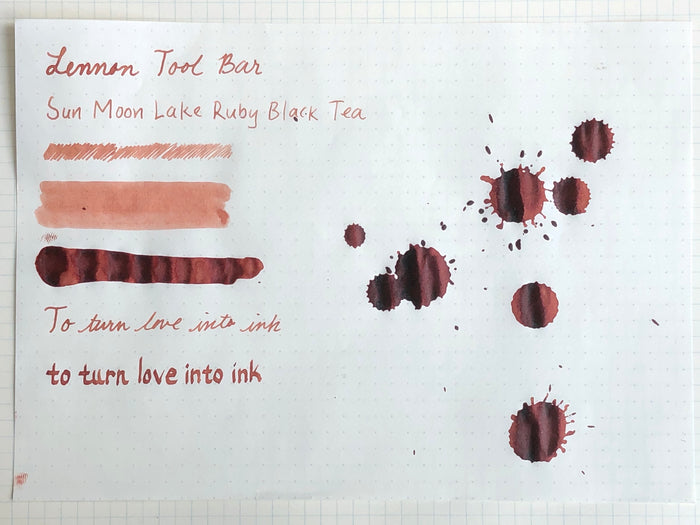 Lennon Tool Bar
Sun Moon Lake Ruby Black Tea
To turn love into ink
to turn love into ink